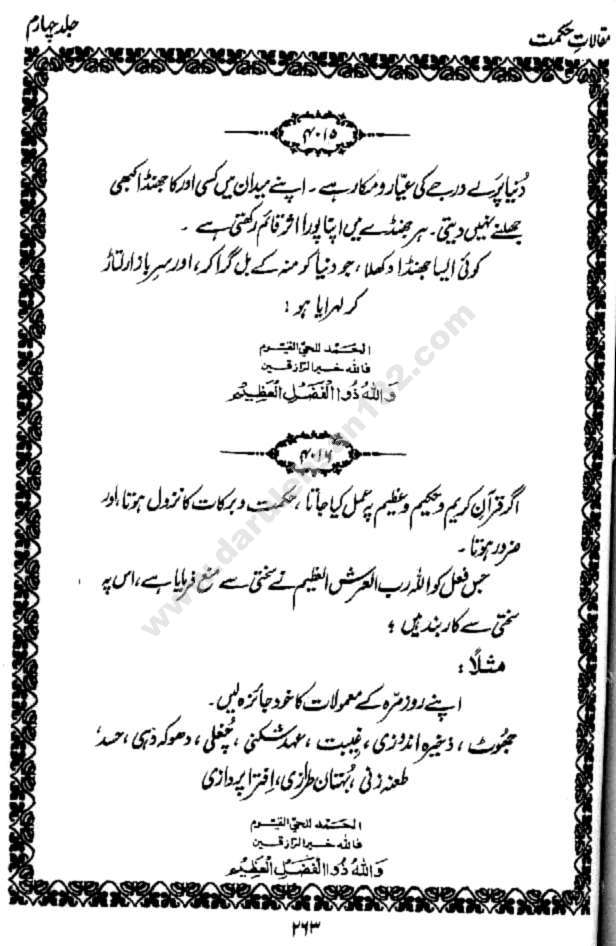 مقالاتِ حکمت
جلد چہارم
۴۰۱۵
دُنیا پَرلے درجے کی عیّار و مکار ہے ۔ اپنے میدان میں کسی اور کا جھنڈا کبھی
جھلنے نہیں دیتی ۔ ہر جھنڈے میں اپنا پورا اثر قائم رکھتی ہے ۔
کوئی ایسا جھنڈا دکھلا ، جو دنیا کو منہ کے بل گرا کر ، اور سرِ بازار لتاڑ
کر لہرایا ہو :
الحمد للحی القیوم
فاللہ خیر الرازقین
وَاللّٰهُ ذُو الْفَضْلِ الْعَظِيْمِ
۴۰۱۶
اگر قرآنِ کریم و حکیم و عظیم پہ عمل کیا جاتا ، حکمت و برکات کا نزول ہوتا ، اور
ضرور ہوتا ۔
جس فعل کو اللہ رب العرش العظیم نے سختی سے منع فرمایا ہے ، اس پہ
سختی سے کاربند ہیں ؛
مثلاً :
اپنے روز مرّہ کے معمولات کا خود جائزہ لیں ۔
جھوٹ ، ذخیرہ اندوزی ، غیبت ، عہد شکنی ، چُغلی ، دھوکہ دہی ، حسد ،
طعنہ زنی ، بُہتان طرازی ، اِفترا پردازی
الحمد للحی القیوم
فاللہ خیر الرازقین
وَاللّٰهُ ذُو الْفَضْلِ الْعَظِيْمِ
۲۶۳